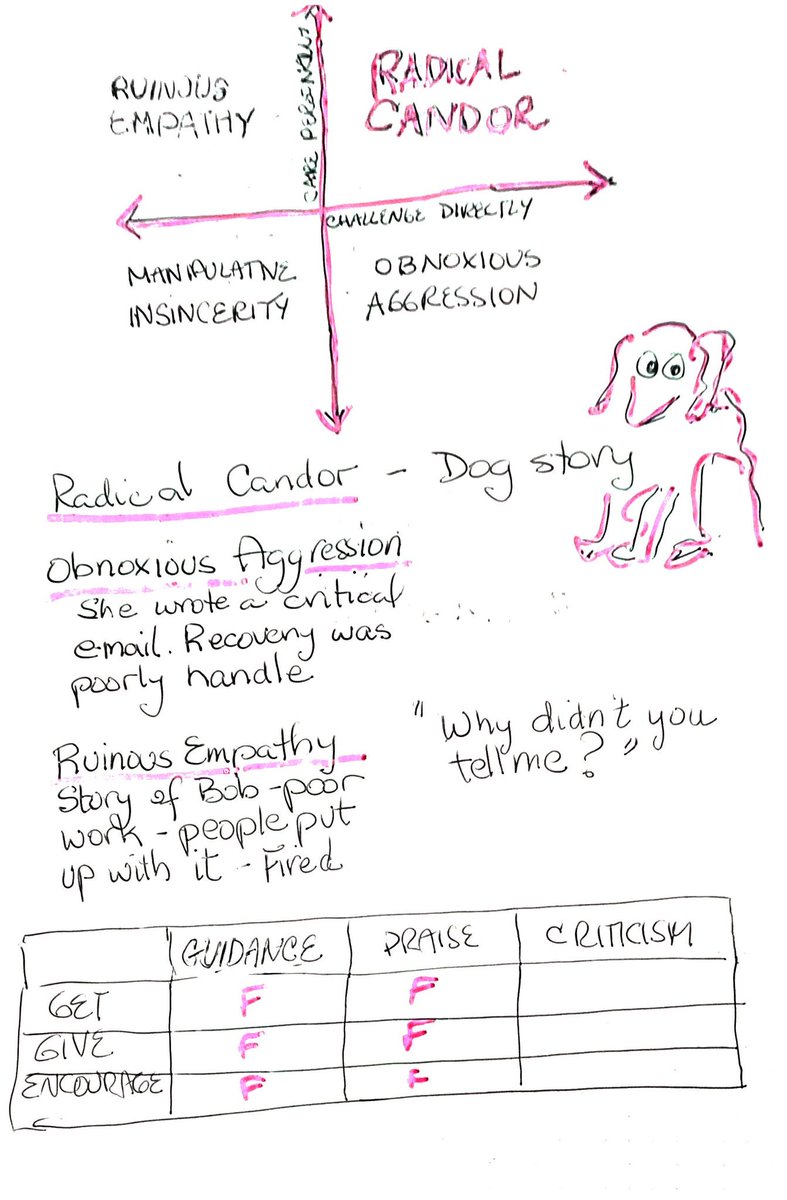 RUINOUS
EMPATHY
CARE PERSONALLY
RADICAL
CANDOR
CHALLENGE DIRECTLY
MANIPULATIVE
INSINCERITY
OBNOXIOUS
AGGRESSION
Radical Candor - Dog story
Obnoxious Aggression
She wrote a critical
e-mail. Recovery was
poorly handle
Ruinous Empathy
Story of Bob - poor
work - people put
up with it - Fired
"Why didn't you
tell me?"
GUIDANCE PRAISE CRITICISM
GET F F
GIVE F F
ENCOURAGE F F